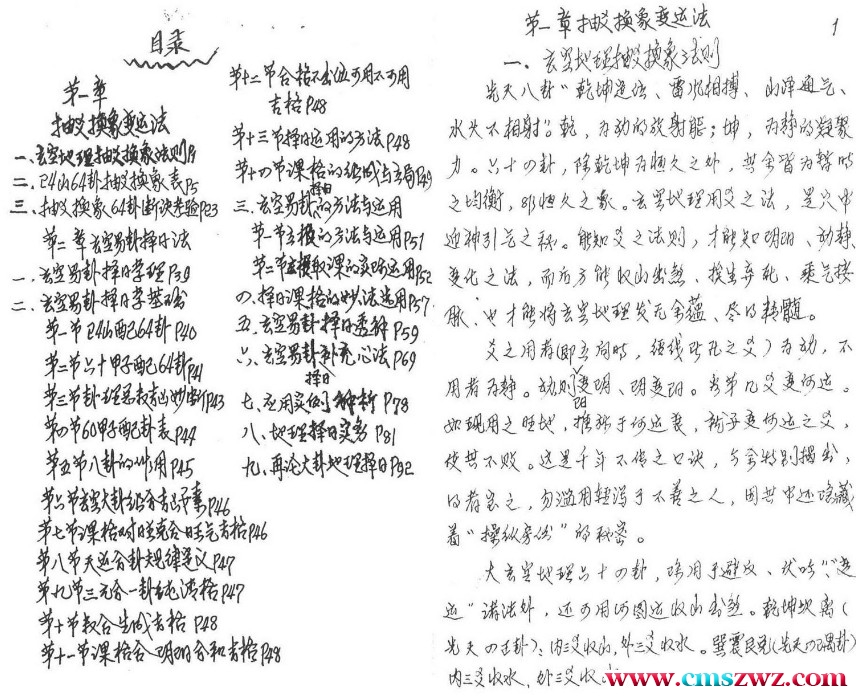 目录
第一章
抽爻换象变运法
一、玄空地理抽爻换象法则P1
二、24山64卦抽爻换象表P5
三、抽爻换象64卦断诀考验P23
第二章玄空易卦择日法
一、玄空易卦择日学理P39
二、玄空易卦择日学基础
第一节24山配64卦P40
第二节六十甲子配64卦P41
第三节卦理总表吉凶断P43
第四节60甲子配卦表P44
第五节八卦的作用P45
第六节玄空大卦 P46
第七节课格对旺克合旺气吉格P46
第八节天运合卦规律定义P47
第九节三元合一卦纯清格P47
第十节数合生成吉格 P48
第十一节课格合阴阳合和吉格P48
第十二节合格不出位可用不可用
吉格P48
第十三节择日运用的方法P48
第十四节课格的组成与立局P49
三、玄空易卦择日的方法与运用
第一节主格的方法与运用P51
第二节主格取课的实际运用P52
四、择日课格的妙法选用P57
五、玄空易卦择日透解P59
六、玄空易卦择日补充心法P69
七、应用实例解析P78
八、地理择日实务P81
九、再论大卦地理择日P92
第一章抽爻换象变运法
1
一、玄空地理抽爻换象法则
先天八卦“乾坤定位、雷风相搏、山泽通气、
水火不相射”。乾,为动的放射能;坤,为静的凝聚
力。六十四卦,除乾坤为恒久之外,其余皆为暂时
之均衡,非恒久之象。玄空地理用爻之法,是穴中
迎神引气之秘。能知爻之法则,才能知阴阳、动静
变化之法,而后方能收山出煞、挨生弃死、乘气接
脉,也才能将玄空地理发无余蕴、尽得精髓。
爻之用者(即立向时,线所孔之爻)为动,不
用者为静。动则阳变阴、阴变阳。考第几爻变何运。
如现用之旺地,推移于何运衰,就予变何运之爻,
使其不败。这是千年不传之口诀,今特别揭出,
得者宝之,勿滥用轻泻于不善之人,因其中还隐藏
着“操纵房份”的秘密。
大玄空地理六十四卦,除用于避反、伏吟、“变
运”诸法外,还可用河图运收山出煞。乾坤坎离(
先天四正卦):内三爻收山,外三爻收水。巽震艮兑(先天四隅卦)
内三爻收水、外三爻收山
www.cmszwz.com